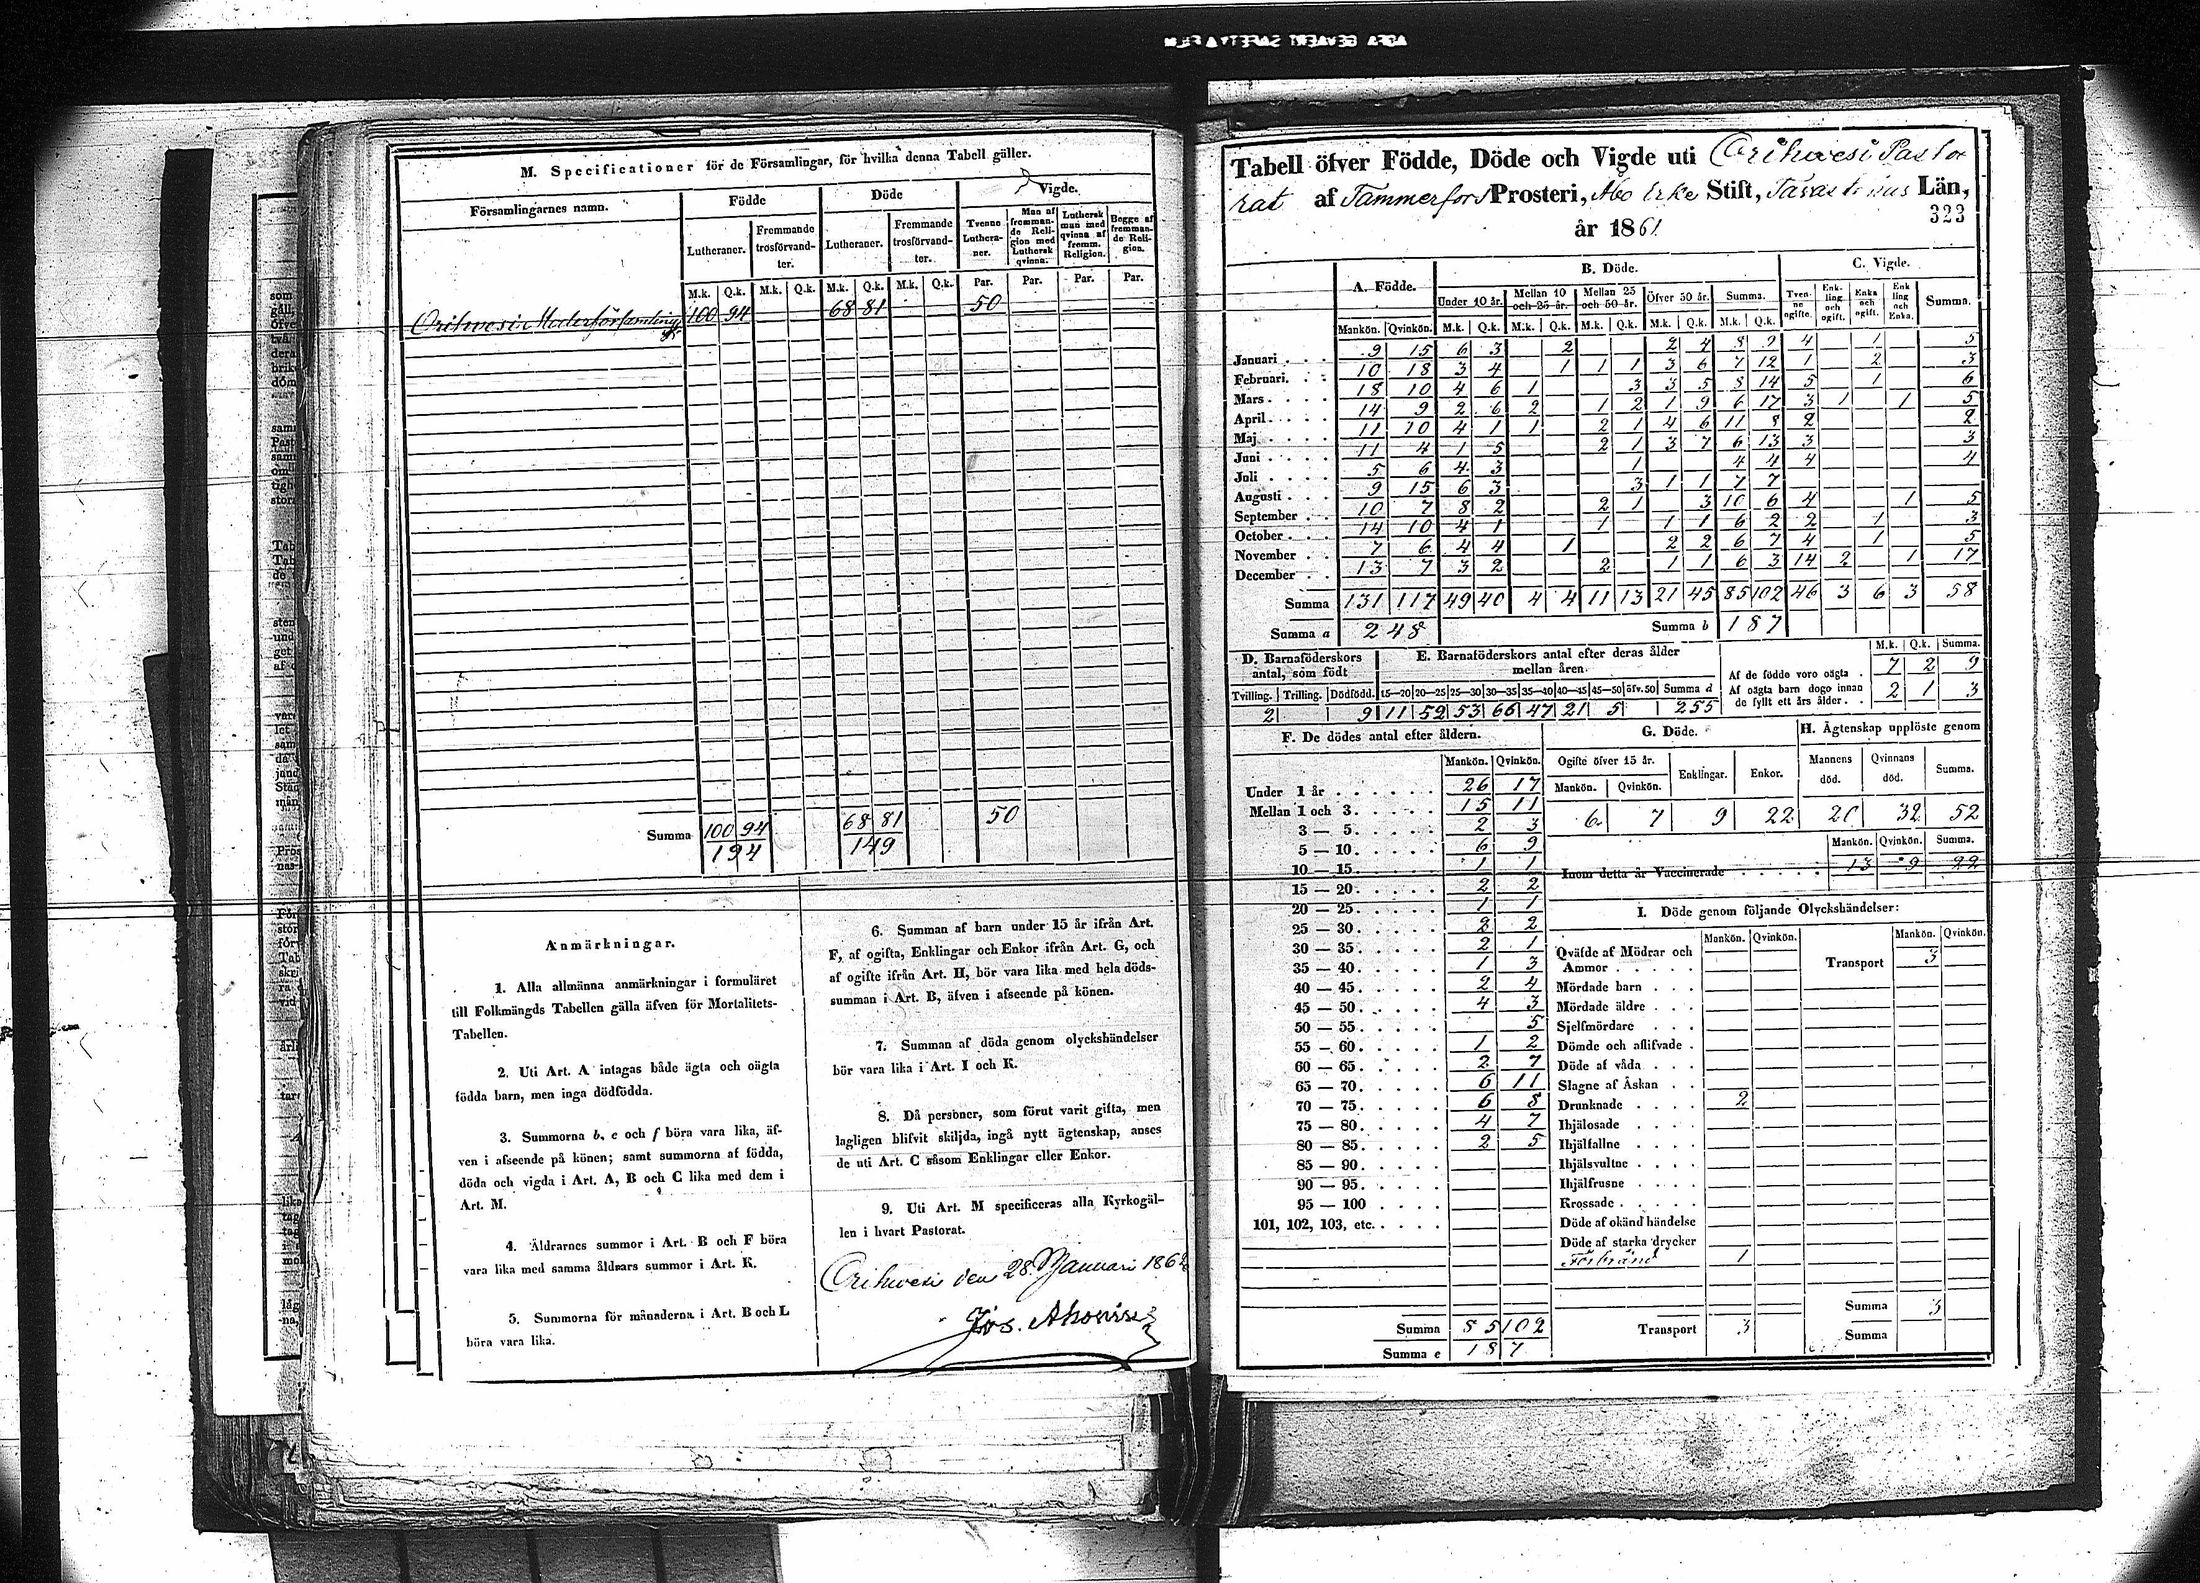 M. Specificationer för de Församlingar, för hvilka denna Tabell gäller.
Församlingarnes namn. Födde Döde Vigde.
Lutheraner. Fremmande trosförvandter. Lutheraner. Fremmande trosförvandter. Tvenne Lutheraner. Man af fremmande Religion med Luthersk qvinna. Luthersk man med qvinna af fremm. Religion. Begge af fremmande Religion.
M.k. Q.k. M.k. Q.k. M.k. Q.k. M.k. Q.k. Par. Par. Par. Par.
Orihvesi Moderförsamling 100 94 68 81 50
Summa 100 94 68 81 50
194 149
Anmärkningar.
1. Alla allmänna anmärkningar i formuläret
till Folkmängds Tabellen gälla äfven för Mortalitets-
Tabellen.
2. Uti Art. A intagas både ägta och oägta
födda barn, men inga dödfödda.
3. Summorna b, e och f böra vara lika, äf-
ven i afseende på könen; samt summorna af födda,
döda och vigda i Art. A, B och C lika med dem i
Art. M.
4. Åldrarnes summor i Art. B och F böra
vara lika med samma åldrars summor i Art. K.
5. Summorna för månaderna i Art. B och L
böra vara lika.
6. Summan af barn under 15 år ifrån Art.
F, af ogifta, Enklingar och Enkor ifrån Art. G, och
af ogifte ifrån Art. H, bör vara lika med hela döds-
summan i Art. B, äfven i afseende på könen.
7. Summan af döda genom olyckshändelser
bör vara lika i Art. I och K.
8. Då personer, som förut varit gifta, men
lagligen blifvit skiljda, ingå nytt ägtenskap, anses
de uti Art. C såsom Enklingar eller Enkor.
9. Uti Art. M specificeras alla Kyrkogäl-
len i hvart Pastorat.
Orihvesi den 28 Januari 1862
Tabell öfver Födde, Döde och Vigde uti Orihvesi Pasto
rat af Tammerfors Prosteri, Åbo Erke Stift, Tavastehus Län,
323
år 1861
A. Födde. B. Döde. C. Vigde.
Under 10 år. Mellan 10 och 25 år. Mellan 25 och 50 år. Öfver 50 år. Summa. Tvenne ogifte. Enkling och ogift. Enka och ogift. Enkling och Enka. Summa.
Mankön. Qvinkön. M.k. Q.k. M.k. Q.k. M.k. Q.k. M.k. Q.k. M.k. Q.k.
Januari 9 15 6 3 2 2 4 8 9 4 1 5
Februari. 10 18 3 4 1 1 1 3 6 7 12 1 2 3
Mars 18 10 4 6 1 3 3 5 8 14 5 1 6
April 14 9 2 6 2 1 2 1 9 6 17 3 1 1 5
Maj 11 10 4 1 1 2 1 4 6 11 8 2 2
Juni 11 4 1 5 2 1 3 7 6 13 3 3
Juli 5 6 4 3 1 4 4 4 4
Augusti 9 15 6 3 3 1 1 7 7
September 10 7 8 2 2 1 3 10 6 4 1 5
October 14 10 4 1 1 1 1 6 2 2 1 3
November 7 6 4 4 1 2 2 6 7 4 1 5
December 13 7 3 2 2 1 1 6 3 14 2 1 17
Summa 131 117 49 40 4 4 11 13 21 45 85 102 46 3 6 3 58
Summa a 248 Summa b 187
D. Barnaföderskors antal, som födt
Tvilling. Trilling. Dödfödd.
2 9
E. Barnaföderskors antal efter deras ålder mellan åren.
15—20 20—25 25—30 30—35 35—40 40—45 45—50 öfv. 50 Summa d
11 52 53 66 47 21 5 255
M.k. Q.k. Summa.
Af de födde voro oägta 7 2 9
Af oägta barn dogo innan
de fyllt ett års ålder 2 1 3
F. De dödes antal efter åldern.
Mankön. Qvinkön.
Under 1 år 26 17
Mellan 1 och 3 15 11
3 — 5 2 3
5 — 10 6 9
10 — 15 1 1
15 — 20 2 2
20 — 25 1 1
25 — 30 2 2
30 — 35 2 1
35 — 40 1 3
40 — 45 2 4
45 — 50 4 3
50 — 55 5
55 — 60 1 2
60 — 65 2 7
65 — 70 6 11
70 — 75 6 8
75 — 80 4 7
80 — 85 2 5
85 — 90
90 — 95
95 — 100
101, 102, 103, etc.
Summa 85 102
Summa e 187
G. Döde.
Ogifte öfver 15 år. Enklingar. Enkor.
Mankön. Qvinkön.
6 7 9 22
H. Ägtenskap upplöste genom
Mannens död. Qvinnans död. Summa.
20 32 52
Mankön. Qvinkön. Summa.
Inom detta år Vaccinerade 13 9 22
I. Döde genom följande Olyckshändelser:
Mankön. Qvinkön. Mankön. Qvinkön.
Qväfde af Mödrar och
Ammor
Transport 3
Mördade barn
Mördade äldre
Sjelfmördare
Dömde och aflifvade
Döde af våda
Slagne af Åskan
Drunknade 2
Ihjälosade
Ihjälfallne
Ihjälsvultne
Ihjälfrusne
Krossade
Döde af okänd händelse
Döde af starka drycker
Förbränd 1
Transport 3
Summa 3
Summa